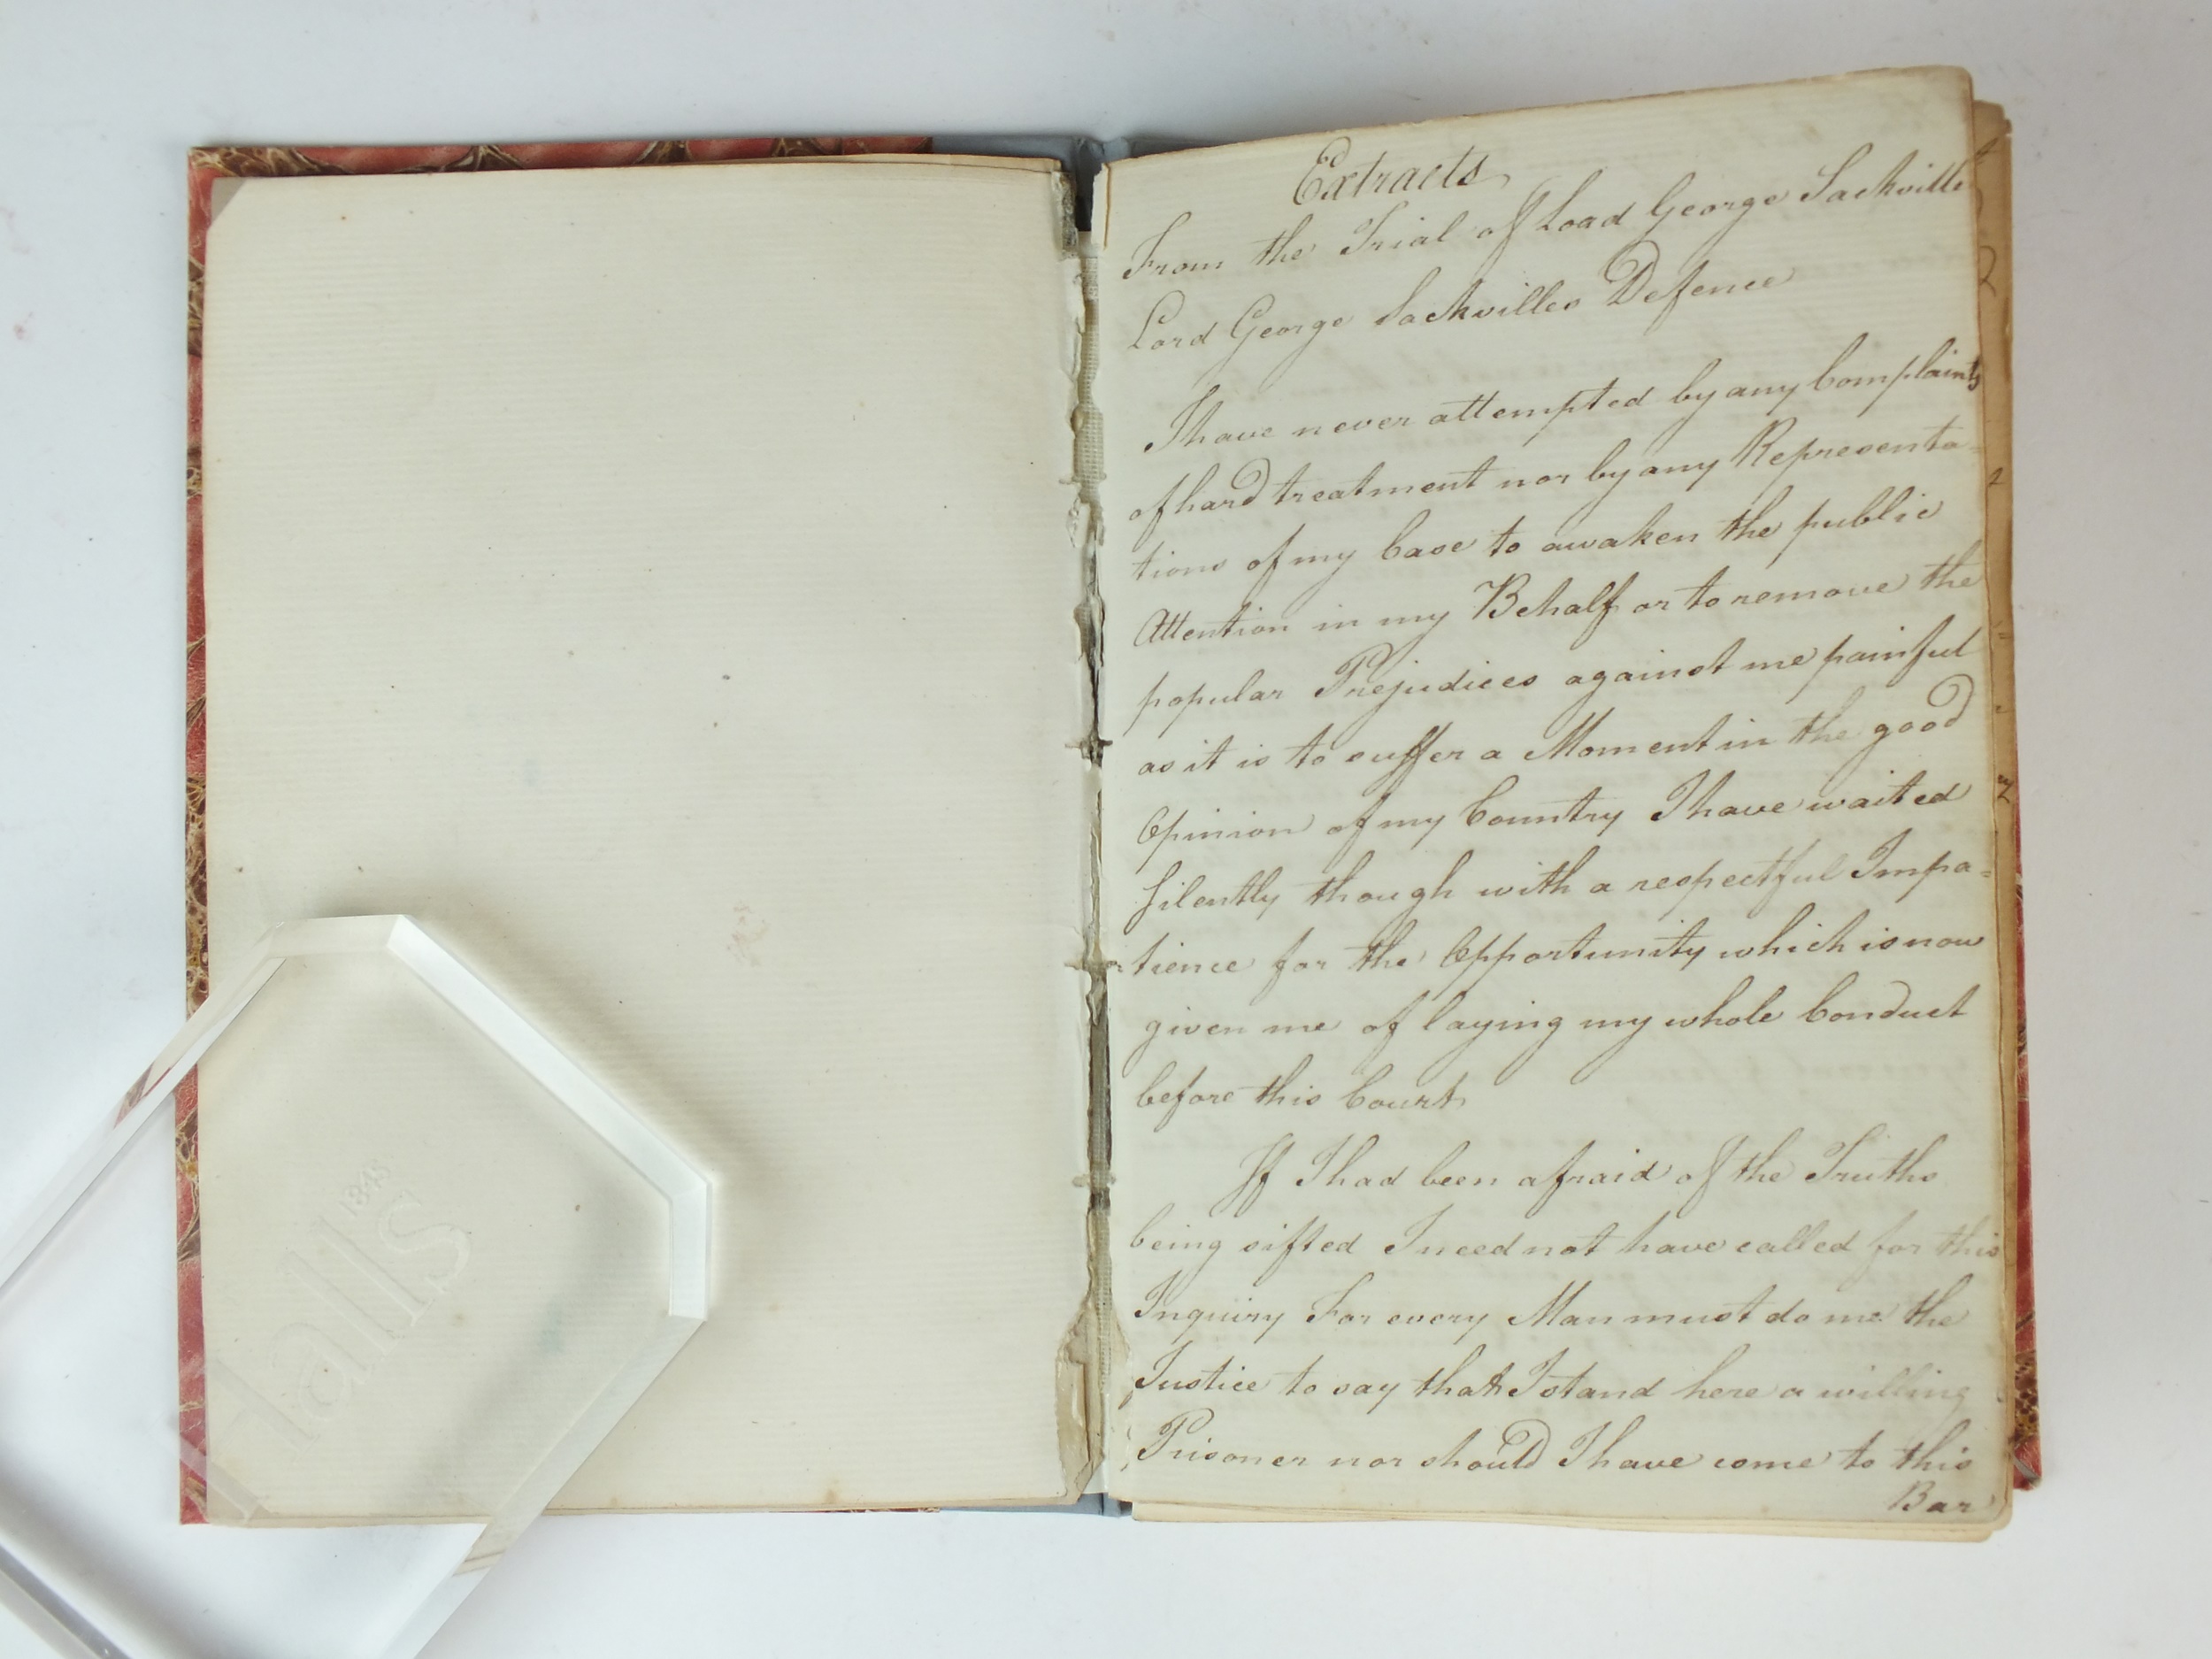 Extracts
From the Trial of Load George Sackville
Lord George Sackvilles Defence
I have never attempted by any Complaints
of hard treatment nor by any Representa=
tions of my Case to awaken the public
Attention in my Behalf or to remove the
popular Prejudices against me painful
as it is to suffer a Moment in the good
Opinion of my Country I have waited
Silently though with a respectful Impa=
tience for the Opportunity which is now
given me of laying my whole Conduct
before this Court
If I had been afraid of the Truths
being sifted I need not have called for this
Inquiry For every Man must do me the
Justice to say that I stand here a willing
Prisoner nor should I have come to this
Bar